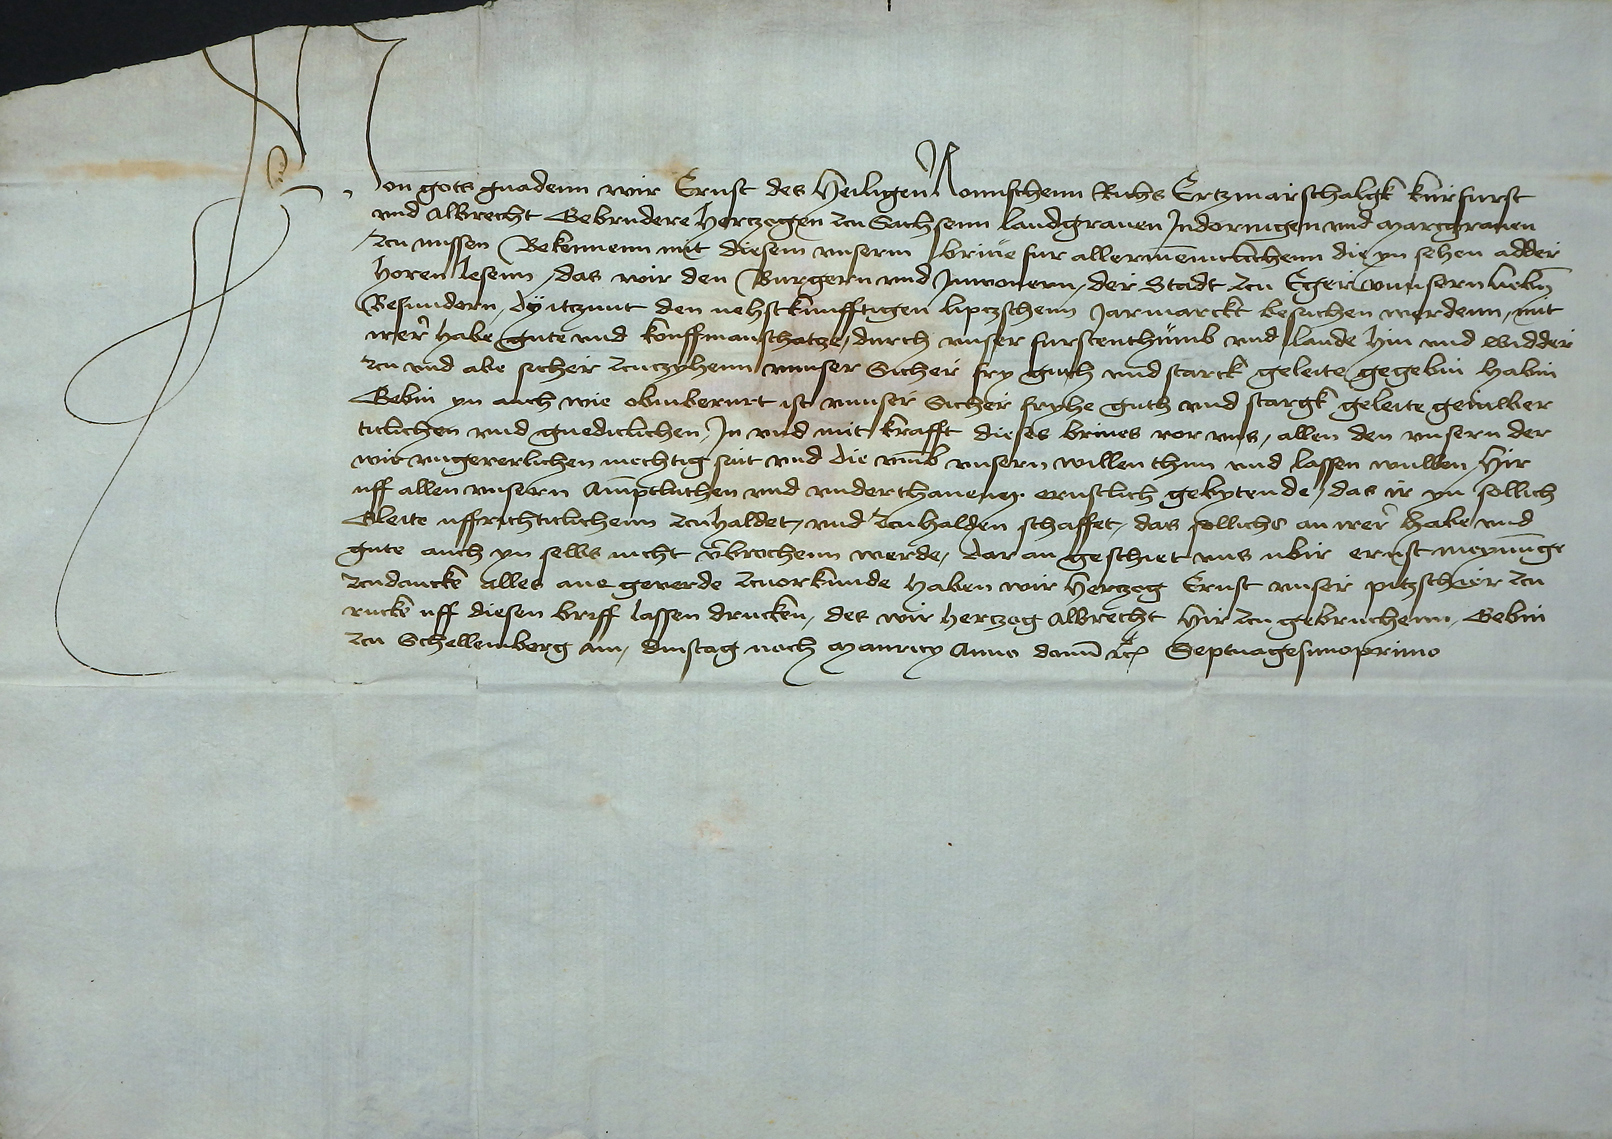 Von gots gnadenn wir Ernst des Heiligen Romischenn Richs Ertzmarschalgk kurfurst
vnd Albrecht Gebrudere Hertzogen zcu Sachsenn landgrauen Indoringen vnd Marcgrauen
zcu missen Bekennenn mit diesem vnserm briue fur allermeniclichenn die yn sehen adder
horen lesenn, das wir den Burgern vnd Inwonern, der Stadt zcu Eger vnnsern liebin
Besundern, dy itzunt den nehstkunfftigen lipczschenn Jarmarckt besuchen werdenn, mit
irer habe gute vnd kouffmanschatze, durch vnser furstenthumb vnd lande hin vnd widder
zcu vnd abe sicher zcuczyhenn vnnser Sicher fry guth vnd starck geleite gegebin habin
Gebin yn auch wie obinberurt ist vnnser Sicher fryhe guth vnd stargk geleite geinwer
ticlichen vnd gnediclichen, In vnd mit krafft dieses briues vor vns, allen den vnsern der
wir vngeuerlichen mechtig sint vnd die vmb vnsern willen thun vnd lassen wullen, Hir
uff allen vnsern Amptluthen vnd vnderthanenn ernstlich gebytende, das ir yn sollich
Gleite uffrichticlichenn zcuhaldet, vnd zcuhalden schaffet, das sollichs an irer habe vnd
gute auch yn selbs nicht vbrochenn werde, dar an geschiet vns ubir ernst meynung
zcudancke alles ane geuerde zcuorkunde haben wir Hertzog Ernst vnser pitzschir zcu
rucke uff diesen briff lassen drucken, des wir Hertzog Albrecht hir zcu gebruchenn, Gebin
zcu Schellemberg am, dinstag nach Mauricy Anno domi rc Septuagesimoprimo